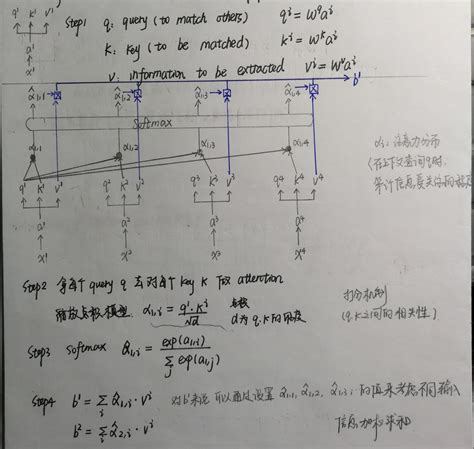 q¹ k¹ v¹
a¹
x¹
Step1 q: query (to match others) qⁱ = W^q aⁱ
k: key (to be matched) kⁱ = W^k aⁱ
v: information to be extracted vⁱ = W^v aⁱ
b¹
α̂₁,₁ α̂₁,₂ α̂₁,₃ α̂₁,₄
Softmax
α₁,₁ α₁,₂ α₁,₃ α₁,₄
q¹ k¹ v¹ q² k² v² q³ k³ v³ q⁴ k⁴ v⁴
a¹ a² a³ a⁴
x¹ x² x³ x⁴
注意力分布
Step2 拿每个 query q 去对每个 key k 做 attention
缩放点积模型 α₁,ᵢ = q¹·kⁱ / √d 点积
d为q.k的维度
打分机制
(q.k之间的相关性)
Step3 softmax α̂₁,ᵢ = exp(α₁,ᵢ) / Σⱼ exp(α₁,ⱼ)
Step4 b¹ = Σᵢ α̂₁,ᵢ·vⁱ 对b¹来说 可以通过设置 α̂₁,₁, α̂₁,₂, α̂₁,₃ 的值来考虑不同输入
b² = Σᵢ α̂₂,ᵢ·vⁱ
信息加权求和